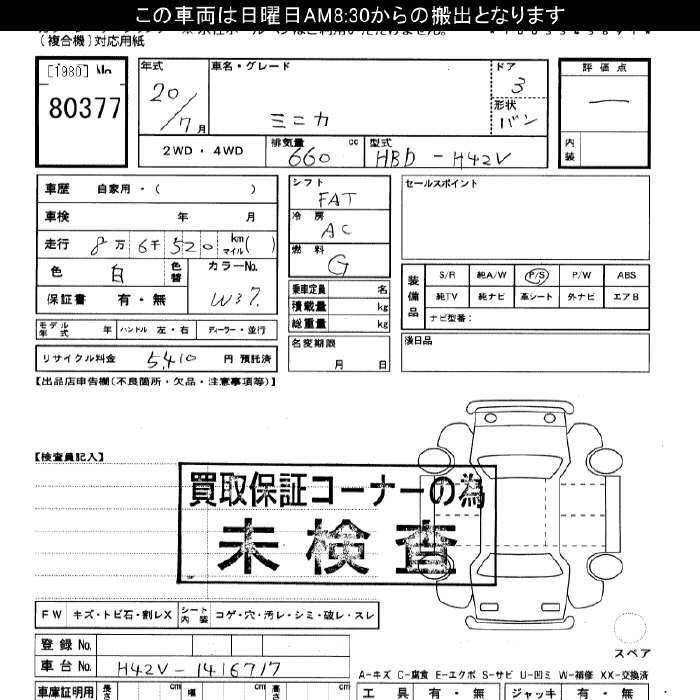 この車両は日曜日AM8:30からの搬出となります
(複合機)対応用紙
[1980] No.
80377
年式
20/7月
車名・グレード
ミニカ
ドア
3
形状
バン
評価点
—
内装
2WD・4WD
排気量 660 cc
型式 HBD-H42V
車歴 自家用・( )
車検 年 月
走行 8万6千520 km マイル( )
色 白 色替
カラーNo. W37.
保証書 有・無
モデル年式 年 ハンドル 左・右 ディーラー・並行
リサイクル料金 5,410 円 預託済
シフト FAT
冷房 AC
燃料 G
乗車定員 名
積載量 kg
総重量 kg
名変期限
月 日
セールスポイント
装備品
S/R 純A/W P/S P/W ABS
純TV 純ナビ 革シート 外ナビ エアB
ナビ型番:
後日品
【出品店申告欄(不良箇所・欠品・注意事項等)】
【検査員記入】
買取保証コーナーの為
未検査
FW キズ・トビ石・割レX シート内装 コゲ・穴・汚レ・シミ・破レ・スレ
スペア
登録No.
車台No. H42V-1416717
A-キズ C-腐食 E-エクボ S-サビ U-凹ミ W-補修 XX-交換済
車庫証明用 長さ cm 幅 cm 高さ cm
工具 有・無 ジャッキ 有・無